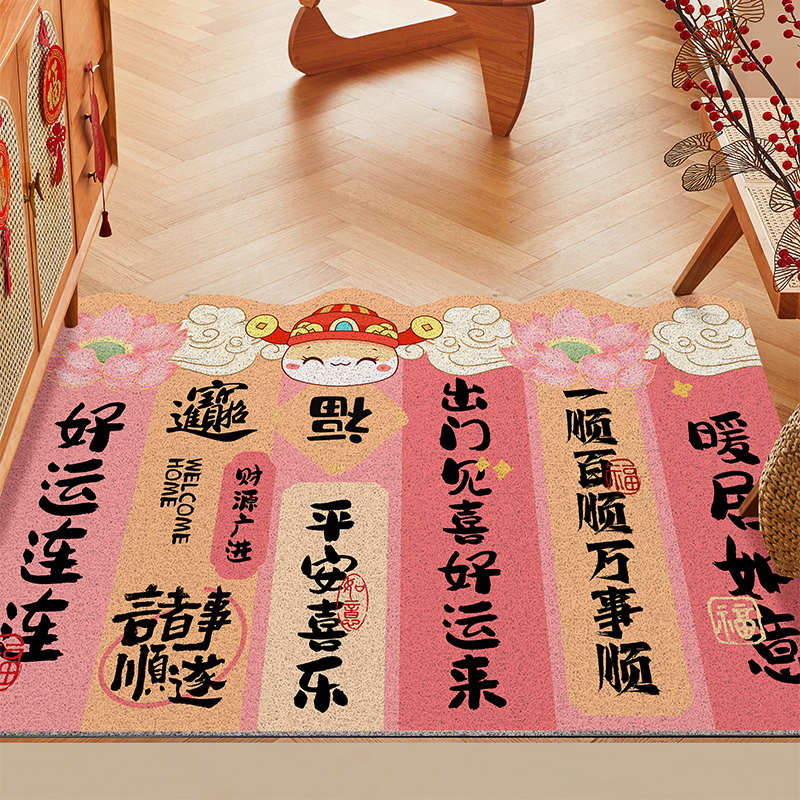 好运连连
招财进宝
WELCOME
HOME
财源广进
諸事
順遂
福
平安喜乐
如意
出门见喜好运来
一顺百顺万事顺
福
暖居如意
福
福